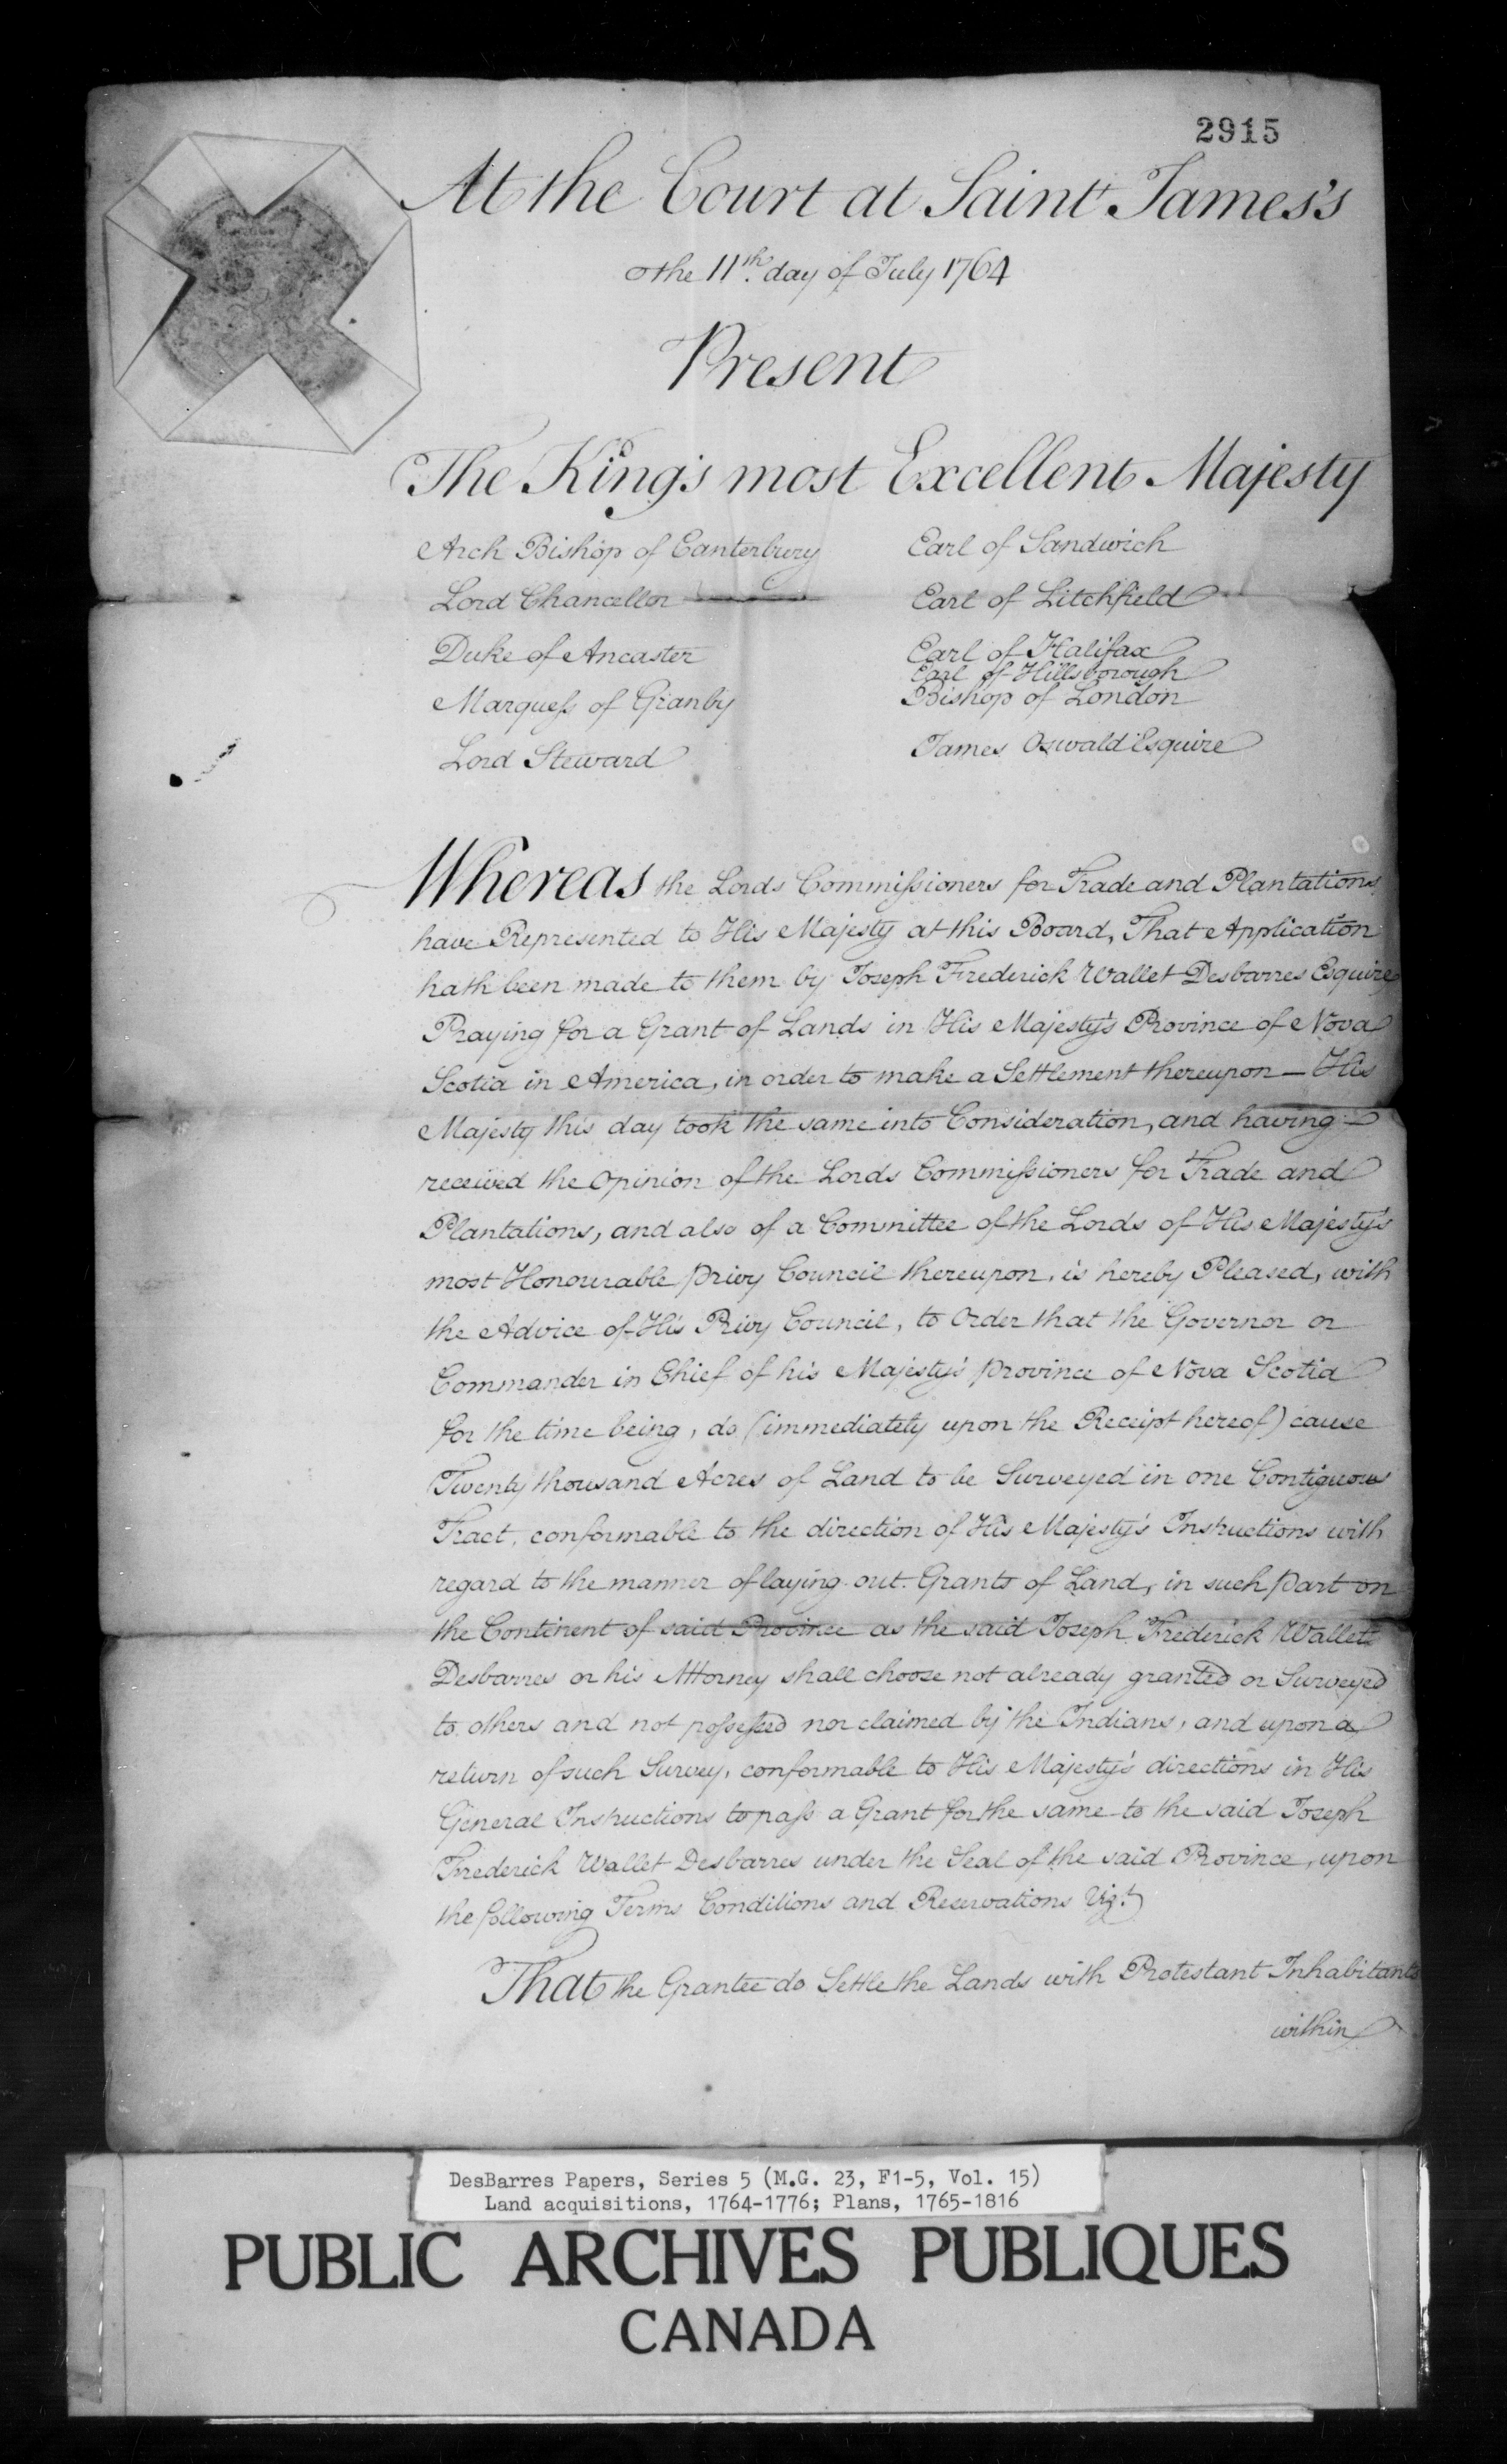 2915
At the Court at Saint James's
the 11th. day of July 1764
Present
The King's most Excellent Majesty
Arch Bishop of Canterbury Earl of Sandwich
Lord Chancellor Earl of Litchfield
Duke of Ancaster Earl of Halifax
Earl of Hillsborough
Marquess of Granby Bishop of London
Lord Steward James Oswald Esquire
Whereas the Lords Commissioners for Trade and Plantations
have Represented to His Majesty at this Board, That Application
hath been made to them by Joseph Frederick Wallet Desbarres Esquire
Praying for a Grant of Lands in His Majesty's Province of Nova
Scotia in America, in order to make a Settlement thereupon — His
Majesty this day took the same into Consideration, and having —
received the Opinion of the Lords Commissioners for Trade and
Plantations, and also of a Committee of the Lords of His Majesty's
most Honourable Privy Council thereupon, is hereby Pleased, with
the Advice of His Privy Council, to Order that the Governor or
Commander in Chief of his Majesty's Province of Nova Scotia
for the time being, do (immediately upon the Receipt hereof) cause
Twenty thousand Acres of Land to be Surveyed in one Contiguous
Tract, conformable to the direction of His Majesty's Instructions with
regard to the manner of laying out Grants of Land, in such part on
the Continent of said Province as the said Joseph Frederick Wallet
Desbarres or his Attorney shall choose not already granted or Surveyed
to others and not possessed nor claimed by the Indians, and upon a
return of such Survey, conformable to His Majesty's directions in His
General Instructions to pass a Grant for the same to the said Joseph
Frederick Wallet Desbarres under the Seal of the said Province, upon
the following Terms Conditions and Reservations Vizt.
That the Grantee do Settle the Lands with Protestant Inhabitants
within
DesBarres Papers, Series 5 (M.G. 23, F1-5, Vol. 15)
Land acquisitions, 1764-1776; Plans, 1765-1816
PUBLIC ARCHIVES PUBLIQUES
CANADA